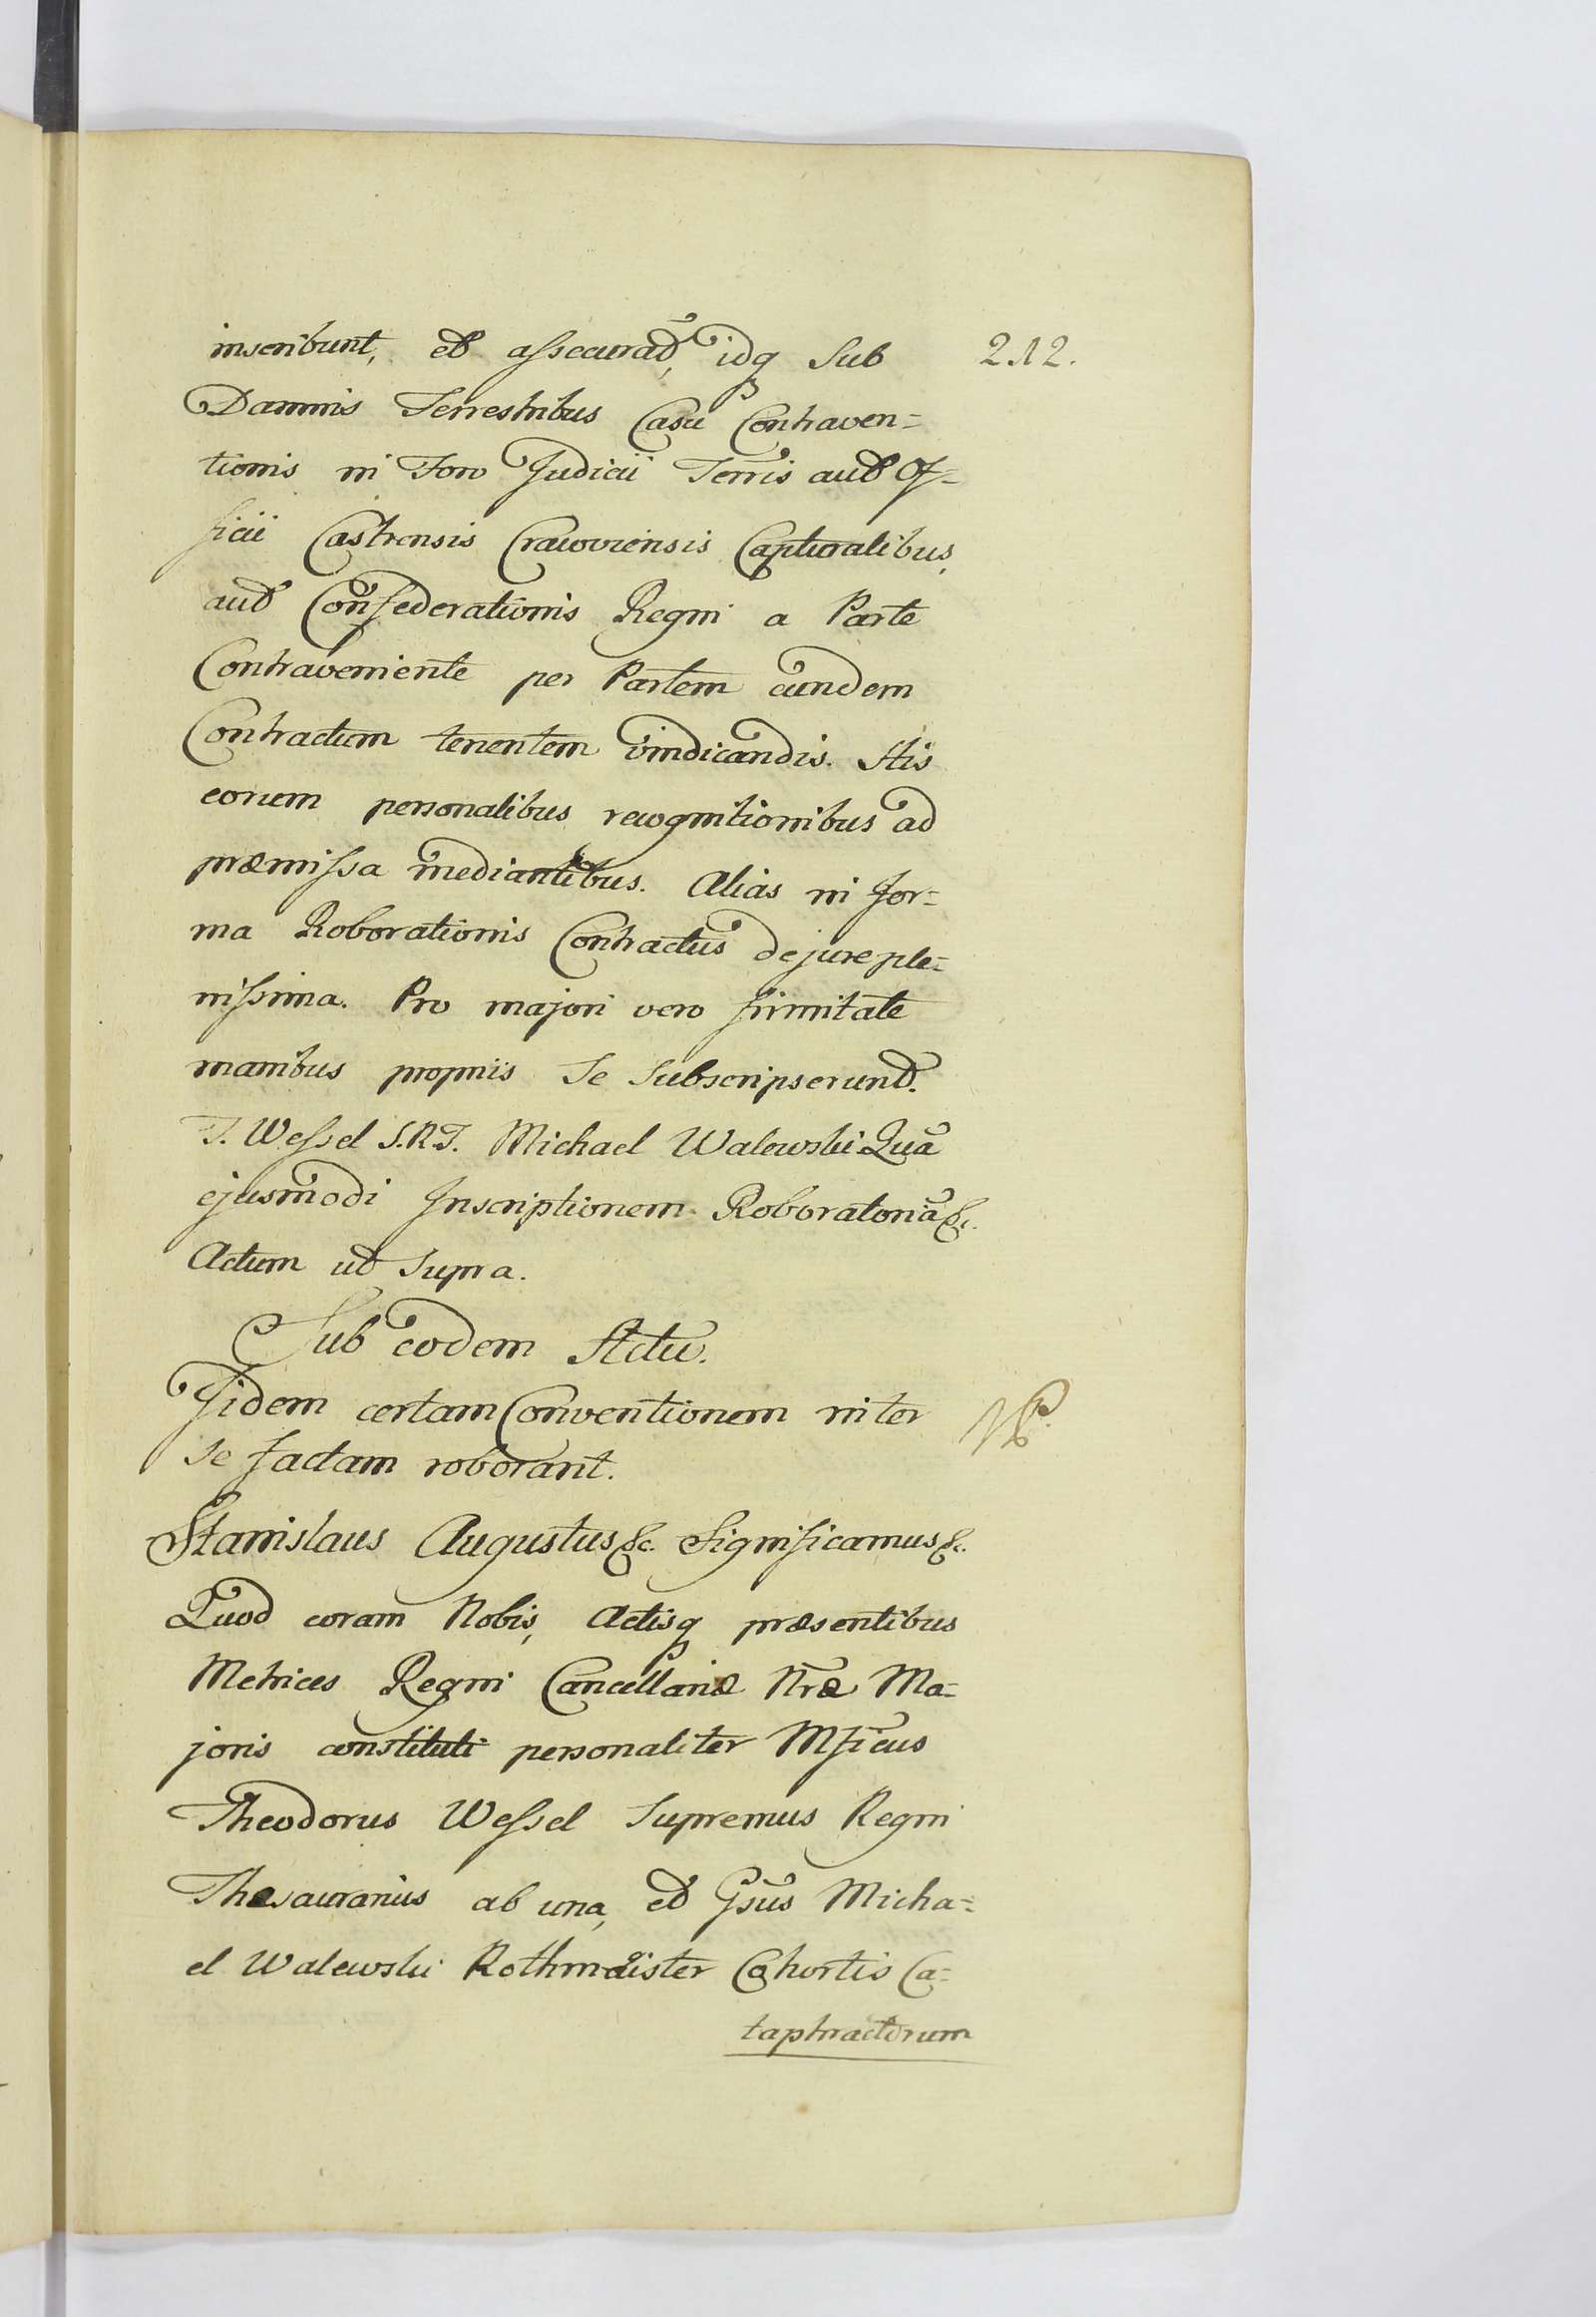 inscribunt, et assecurãt, idq sub
212.
Damnis Terrestribus Casu Contraven=
tionis in Foro Judicii Terr̃is aut Of=
ficii Castrensis Cracoviensis Capturalibus,
aut Confederationis Regni a Parte
Contraveniente per Partem eundem
Contractum tenentem vindicandis. His
eorum personalibus recognitionibus ad
præmissa mediantibus. Alias in for=
ma Roborationis Contractus de jure ple=
nissima. Pro majori vero firmitate
manibus propriis se subscripserunt.
T. Wessel S.R.T. Michael Walewski Quã
ejusmodi Inscriptionem Roboratoriã &c.
Actum ut supra.
Sub eodem Actu.
Iidem certam Conventionem inter
se factam roborant.
Stanislaus Augustus &c. Significamus &c.
Quod coram Nobis, Actisq præsentibus
Metrices Regni Cancellariæ Nrã Ma=
joris constituti personaliter Mficus
Theodorus Wessel Supremus Regni
Thesaurarius ab una, et Gsus Micha=
el Walewski Rothmaister Cohortis Ca=
taphractorum